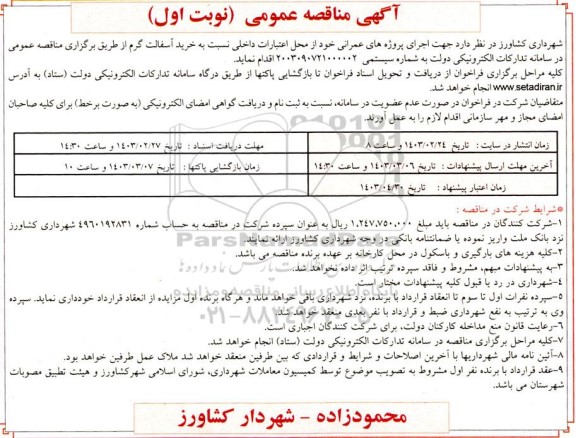 آگهی مناقصه عمومی (نوبت اول)
شهرداری کشاورز در نظر دارد جهت اجرای پروژه های عمرانی خود از محل اعتبارات داخلی نسبت به خرید آسفالت گرم از طریق برگزاری مناقصه عمومی
در سامانه تدارکات الکترونیکی دولت به شماره سیستمی ۲۰۰۳۰۹۰۷۲۱۰۰۰۰۰۲ اقدام نماید.
کلیه مراحل برگزاری فراخوان از دریافت و تحویل اسناد فراخوان تا بازگشایی پاکتها از طریق درگاه سامانه تدارکات الکترونیکی دولت (ستاد) به آدرس
www.setadiran.ir انجام خواهد شد.
متقاضیان شرکت در فراخوان در صورت عدم عضویت در سامانه، نسبت به ثبت نام و دریافت گواهی امضای الکترونیکی (به صورت برخط) برای کلیه صاحبان
امضای مجاز و مهر سازمانی اقدام لازم را به عمل آورند.
زمان انتشار در سایت: تاریخ ۱۴۰۳/۰۲/۲۴ و ساعت ۸ مهلت دریافت اسناد: تاریخ ۱۴۰۳/۰۲/۲۷ و ساعت ۱۴:۳۰
آخرین مهلت ارسال پیشنهادات: تاریخ ۱۴۰۳/۰۳/۰۶ و ساعت ۱۴:۳۰ زمان بازگشایی پاکتها: تاریخ ۱۴۰۳/۰۳/۰۷ و ساعت ۱۰
زمان اعتبار پیشنهاد: تاریخ ۱۴۰۳/۰۴/۳۰
*شرایط شرکت در مناقصه:
۱-شرکت کنندگان در مناقصه باید مبلغ ۱,۲۴۷,۷۵۰,۰۰۰ ریال به عنوان سپرده شرکت در مناقصه به حساب شماره ۴۹۶۰۱۹۲۸۳۱ شهرداری کشاورز
نزد بانک ملت واریز نموده یا ضمانتنامه بانکی در وجه شهرداری کشاورز ارائه نمایند.
۲-کلیه هزینه های بارگیری و باسکول در محل کارخانه بر عهده برنده مناقصه می باشد.
۳-به پیشنهادات مبهم، مشروط و فاقد سپرده ترتیب اثر داده نخواهد شد.
۴-شهرداری در رد یا قبول کلیه پیشنهادات مختار است.
۵-سپرده نفرات اول تا سوم تا انعقاد قرارداد با برنده، نزد شهرداری باقی خواهد ماند و هر گاه برنده اول مزایده از انعقاد قرارداد خودداری نماید. سپرده
وی به ترتیب به نفع شهرداری ضبط و قرارداد با نفر بعدی منعقد خواهد شد.
۶-رعایت قانون منع مداخله کارکنان دولت، برای شرکت کنندگان اجباری است.
۷-کلیه مراحل برگزاری مناقصه در سامانه تدارکات الکترونیکی دولت (ستاد) انجام خواهد شد.
۸-آئین نامه مالی شهرداریها با آخرین اصلاحات و شرایط و قراردادی که بین طرفین منعقد خواهد شد ملاک عمل طرفین خواهد بود.
۹-عقد قرارداد با برنده نفر اول مشروط به تصویب موضوع توسط کمیسیون معاملات شهرداری، شورای اسلامی شهرکشاورز و هیئت تطبیق مصوبات
شهرستان می باشد.
محمودزاده - شهردار کشاورز